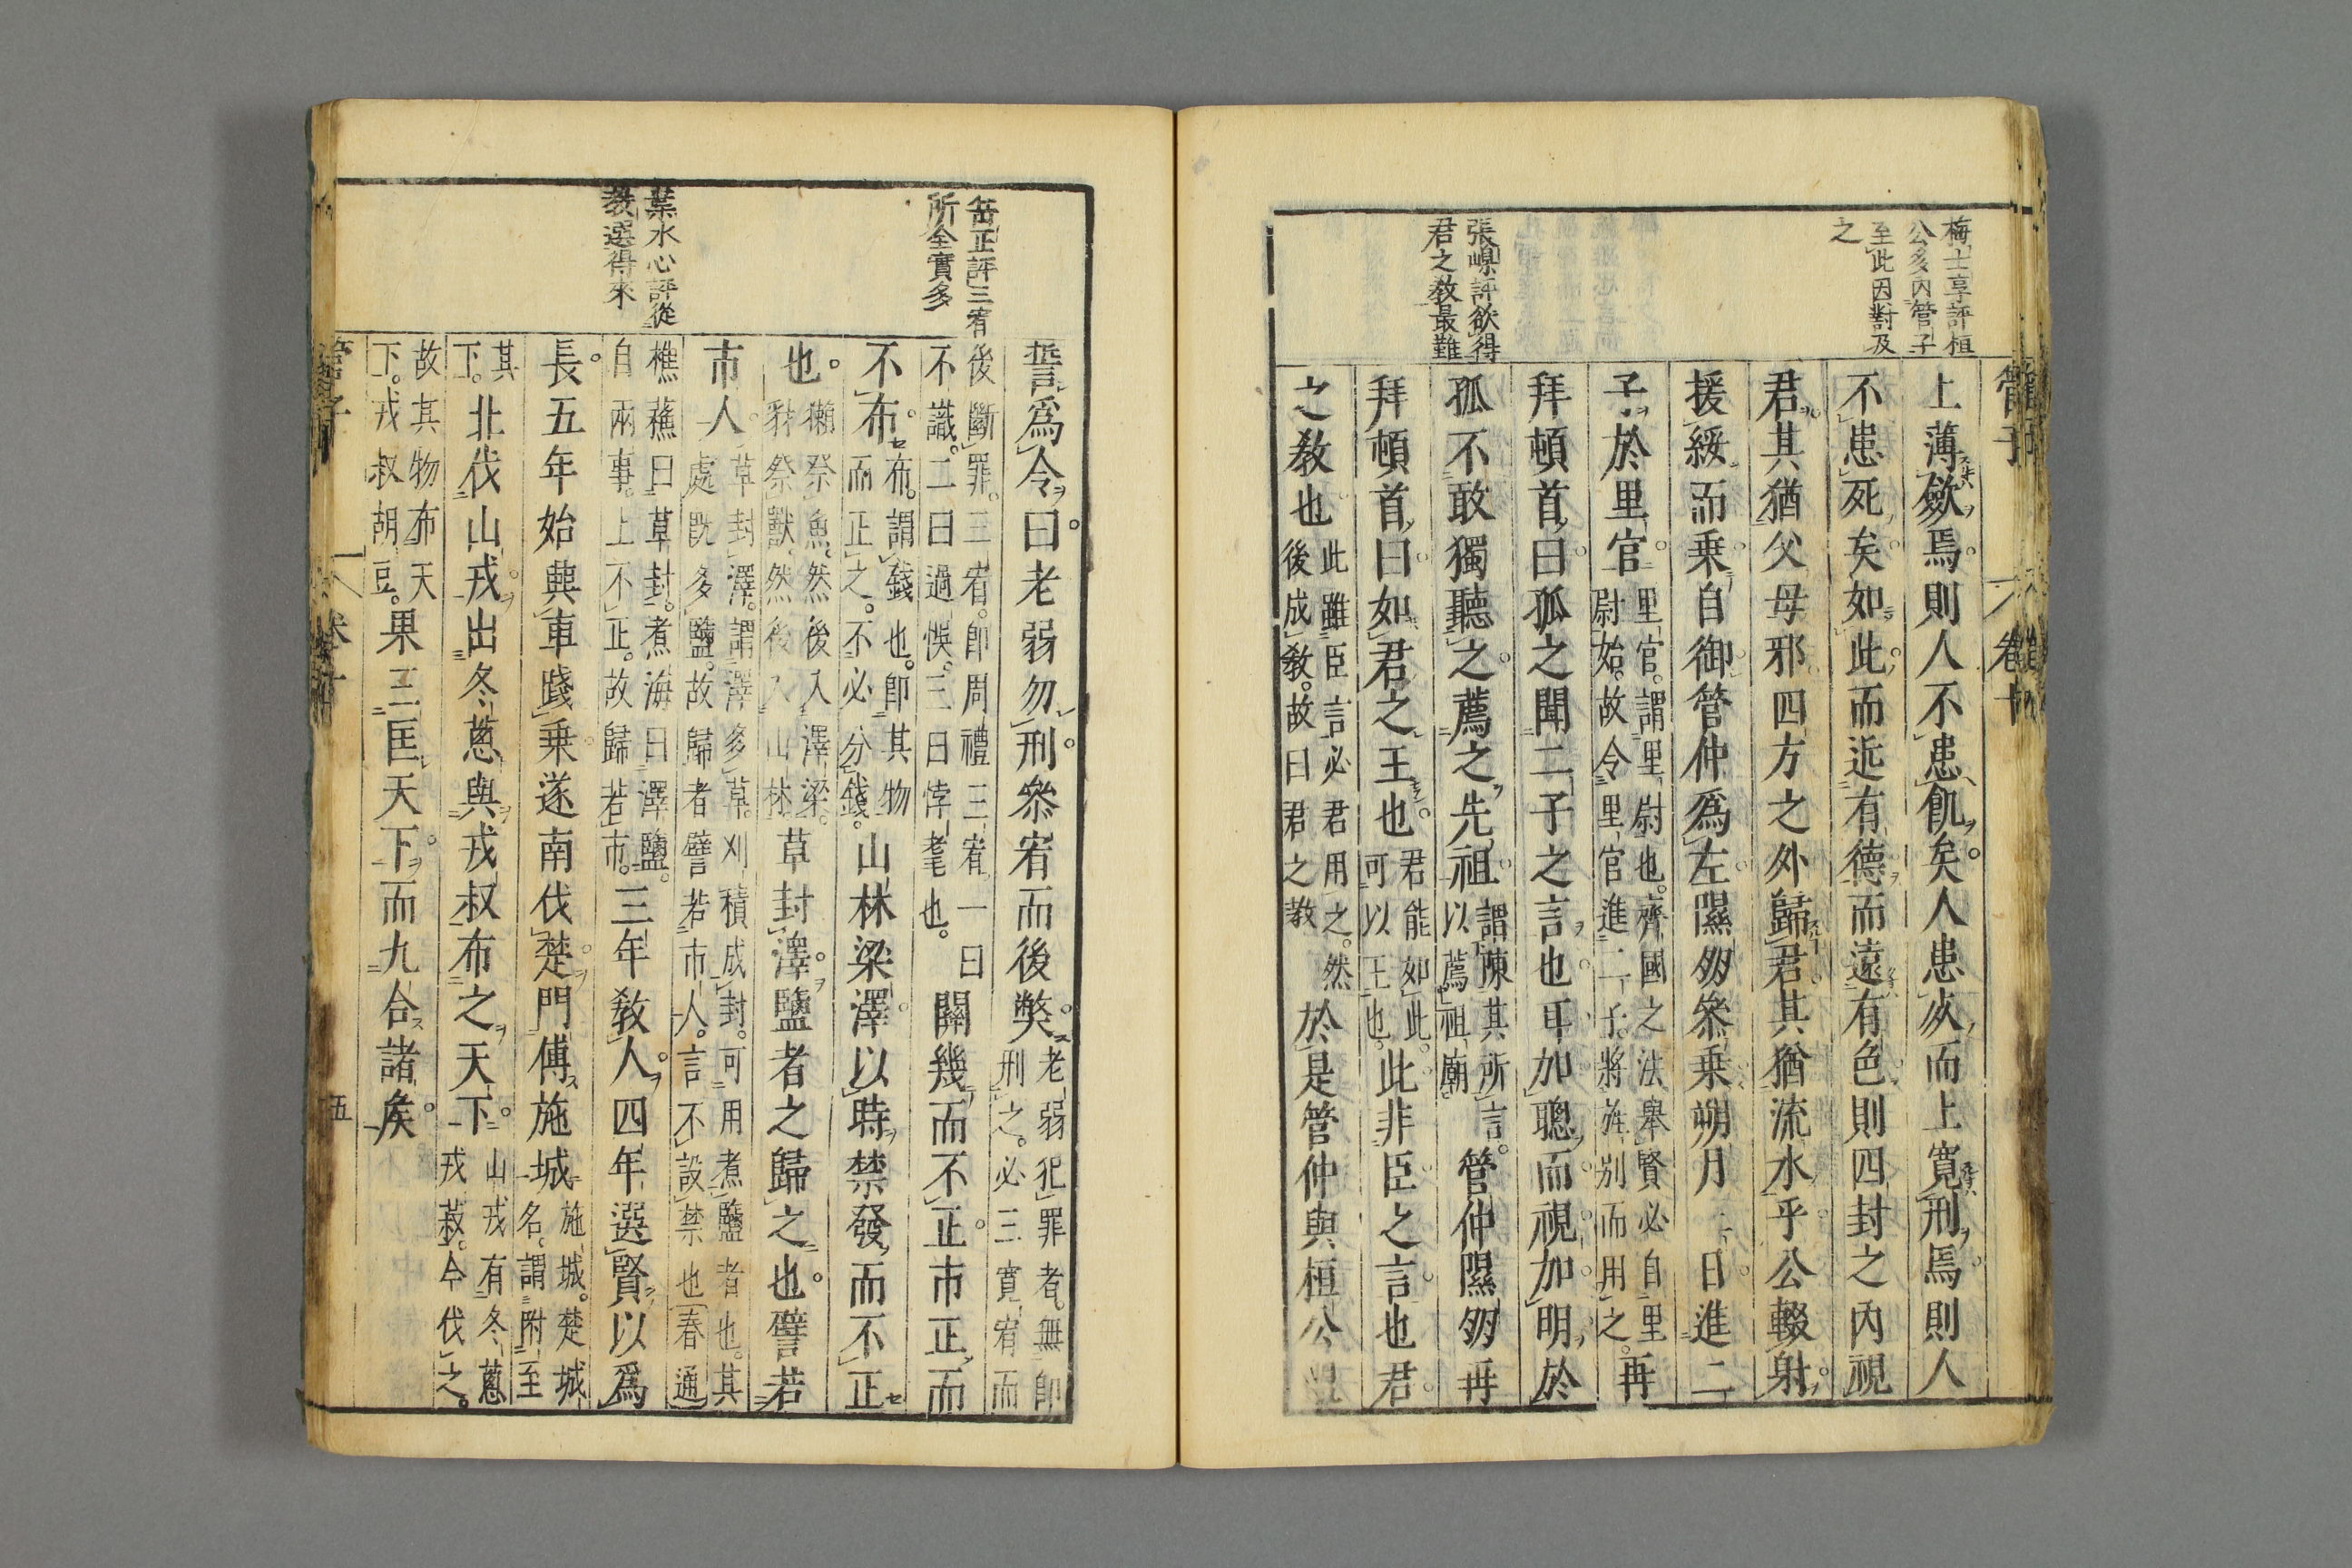 管子
卷十
梅士享評桓
公多內管子
至此因對及
之
張嵲評欲得
君之教最難
上薄斂焉則人不患飢矣人患死而上寬刑焉則人
不患死矣如此而近有德而遠有色則四封之內視
君其猶父母邪四方之外歸君其猶流水乎公輟射
援綏而乘自御管仲為左隰朋參乘朔月三日進二
子於里官里官謂里尉也齊國之法舉賢必自里尉始故令里官進二子將旌別而用之再
拜頓首曰孤之聞二子之言也耳加聰而視加明於
孤不敢獨聽之薦之先祖謂陳其所言以薦祖廟管仲隰朋再
拜頓首曰如君之王也君能如此可以王也此非臣之言也君
之教也此雖臣言必君用之然後成教故曰君之教於是管仲與桓公盟
誓為令曰老弱勿刑參宥而後弊老弱犯罪者無即刑之必三寬宥而
後斷罪三宥即周禮三宥一曰不識二曰過悞三曰悖耄也關幾而不正市正而
不布布謂錢也即其物而正之不必分錢山林梁澤以時禁發而不正
也獺祭魚然後入澤梁豺祭獸然後入山林草封澤鹽者之歸之也譬若
市人草封澤謂澤多草刈積成封可用煮鹽者也其處既多鹽故歸者譬若市人言不設禁也春通
樵蘓曰草封煮海曰澤鹽自兩事上不正故歸若市三年教人四年選賢以為
長五年始興車踐乘遂南伐楚門傅施城施城楚城名謂附至
其下北伐山戎出冬蔥與戎叔布之天下山戎有冬蔥戎菽今伐之
故其物布天下戎叔胡豆果三匡天下而九合諸矦
缶正評三宥
所全實多
葉水心評從
教選得來
管子
卷十
五